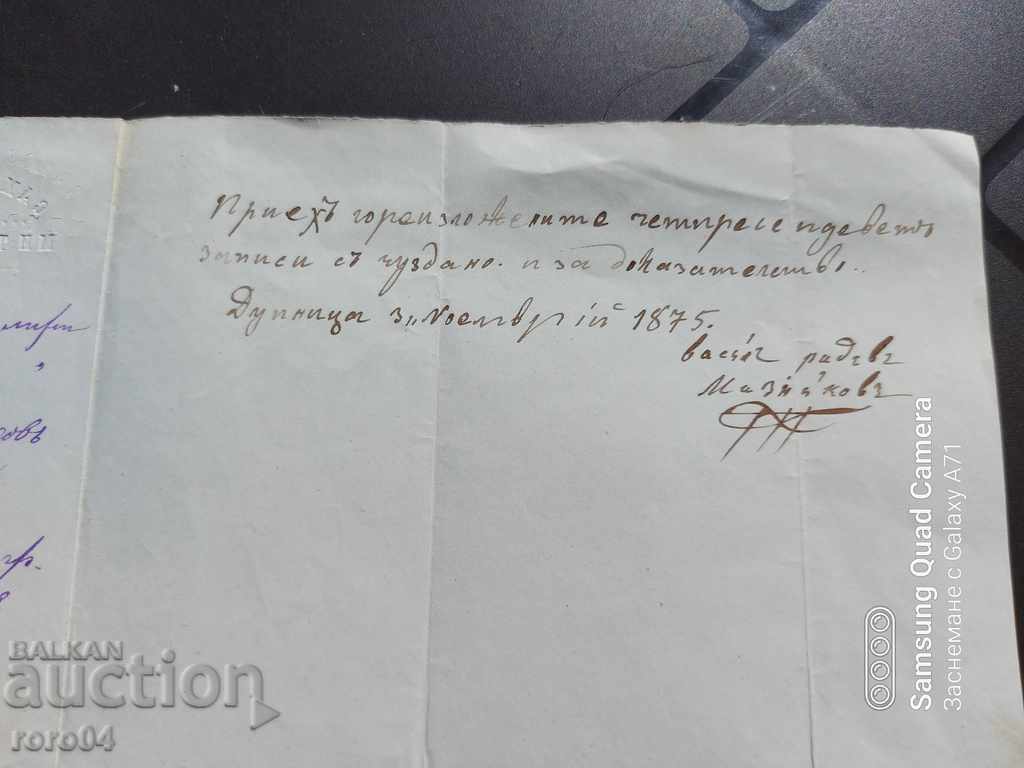 Приехъ гореизложените четиресе и деветь
записи съ чуздано. и за доказателство..
Дупница 3„ Ноемврiй 1875.
васил радевъ
Мазнѝковъ
гр.
BALKAN
auction
roro04
Samsung Quad Camera
Заснемане с Galaxy A71